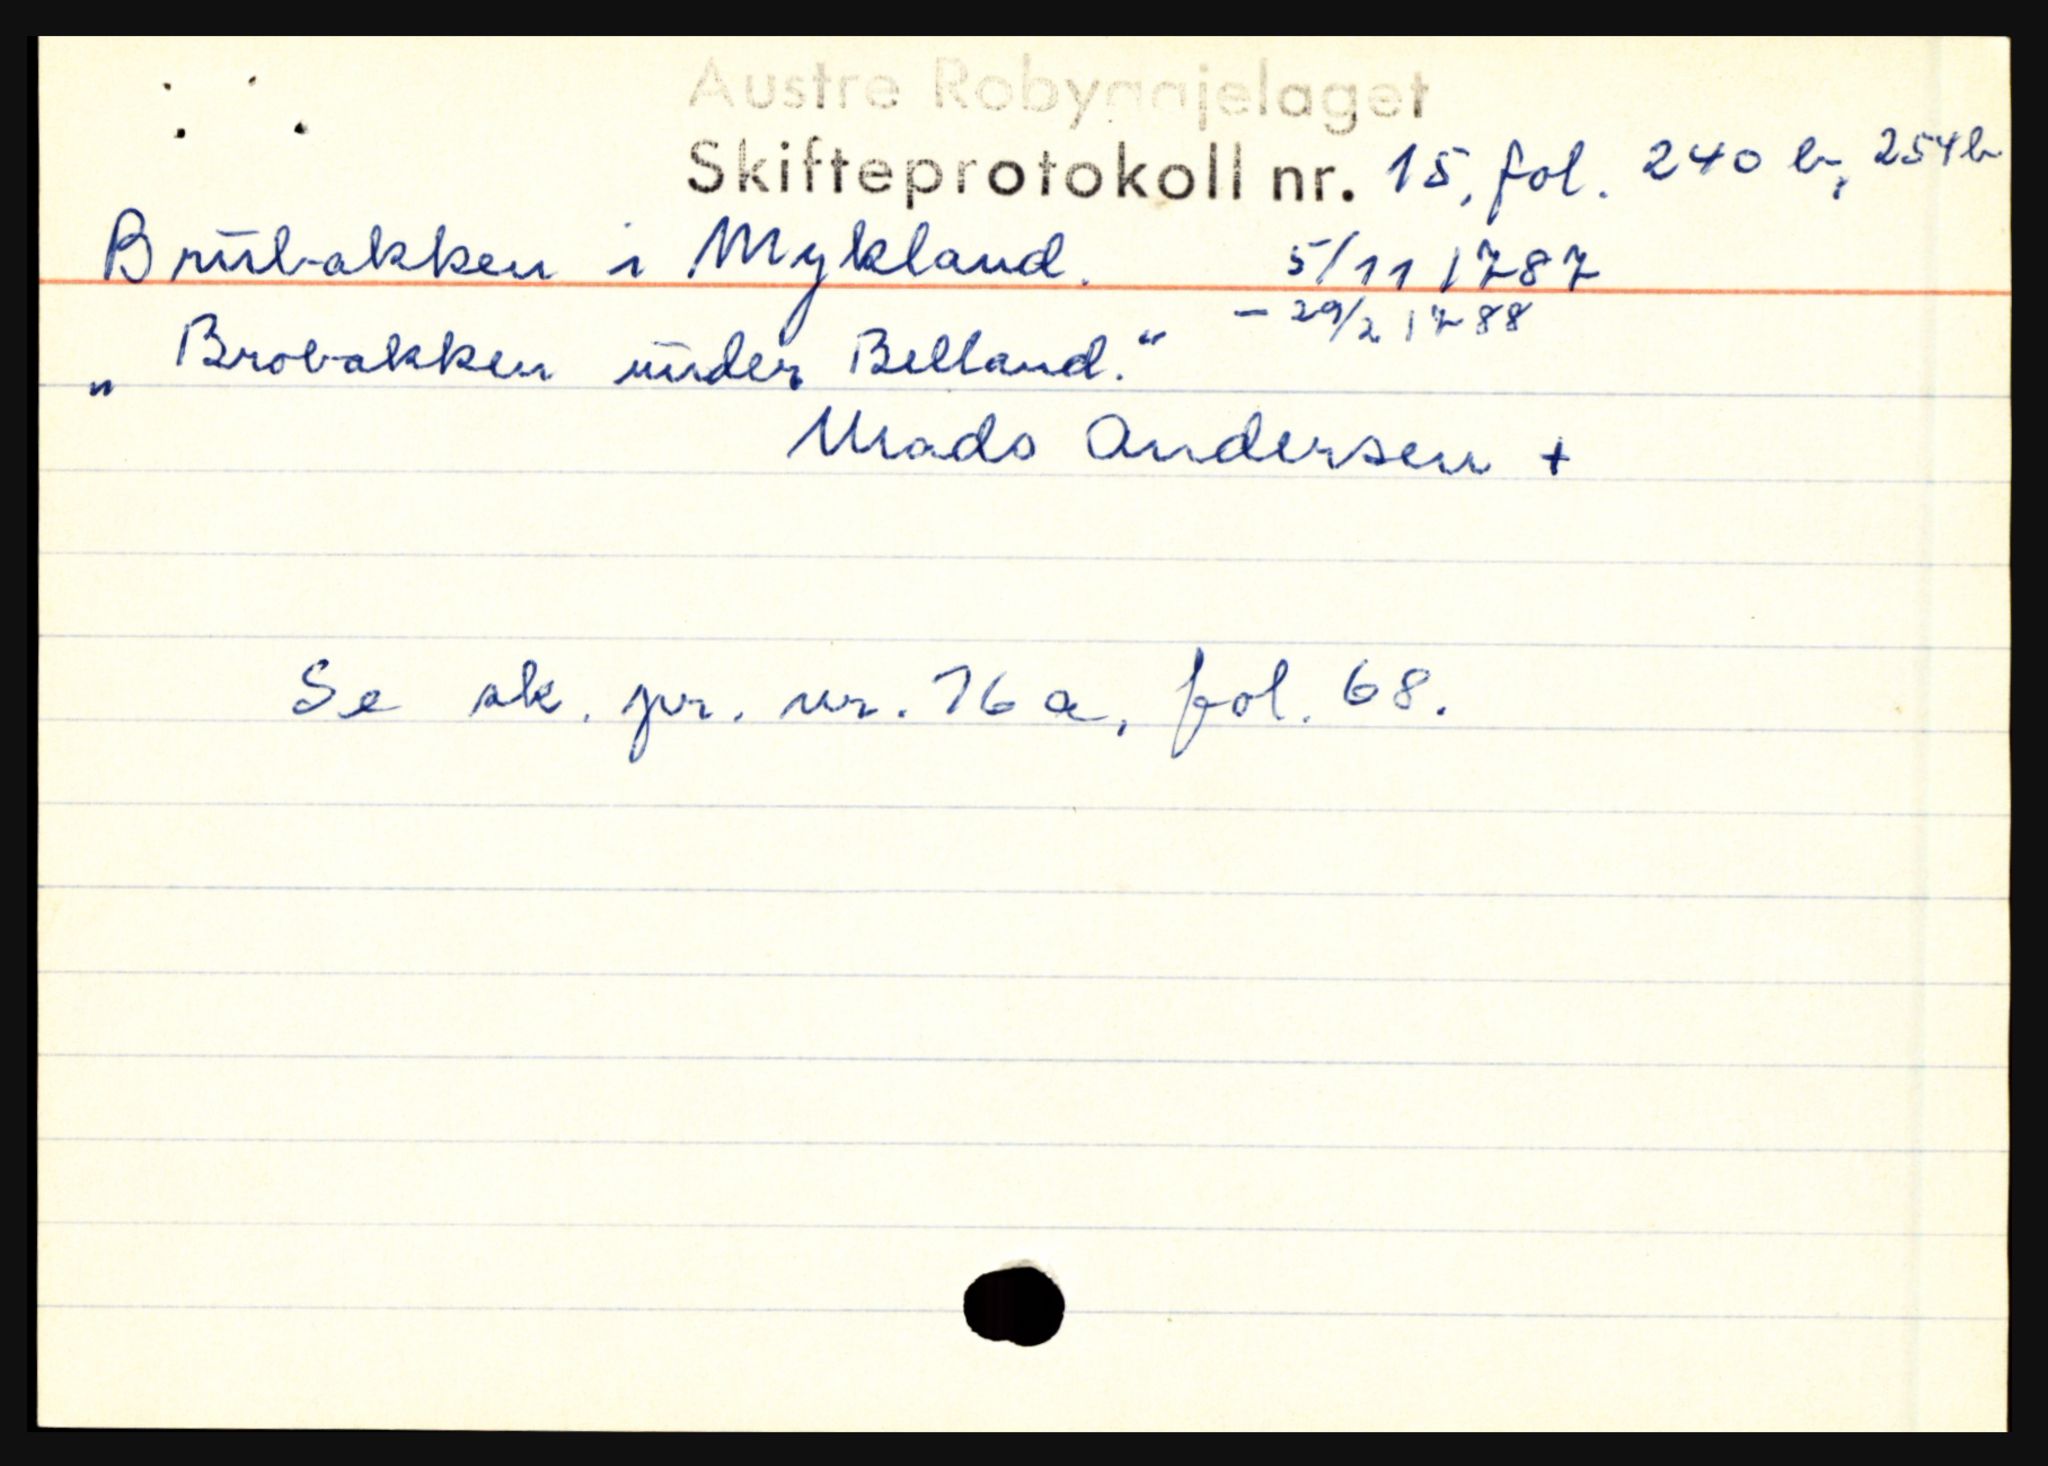 Austre Robyggjelaget
Skifteprotokoll nr. 15, fol. 240 b, 254b
Brubakken i Mykland. 5/11 1787
– 29/2 1788
„Brobakken under Belland.“
Mads Andersen +
Se sk. pr. nr. 16 a, fol. 68.